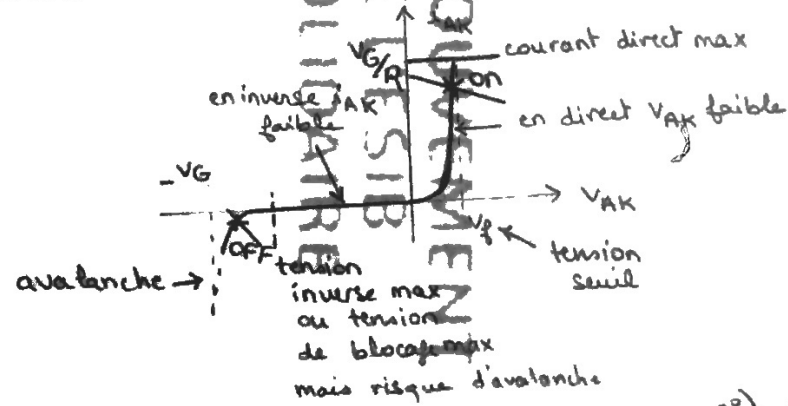 iAK
courant direct max
VG/R
ON
en inverse iAK
faible
en direct VAK faible
-VG
VAK
Vf
tension
seuil
OFF
avalanche
tension
inverse max
ou tension
de blocage max
mais risque d'avalanche